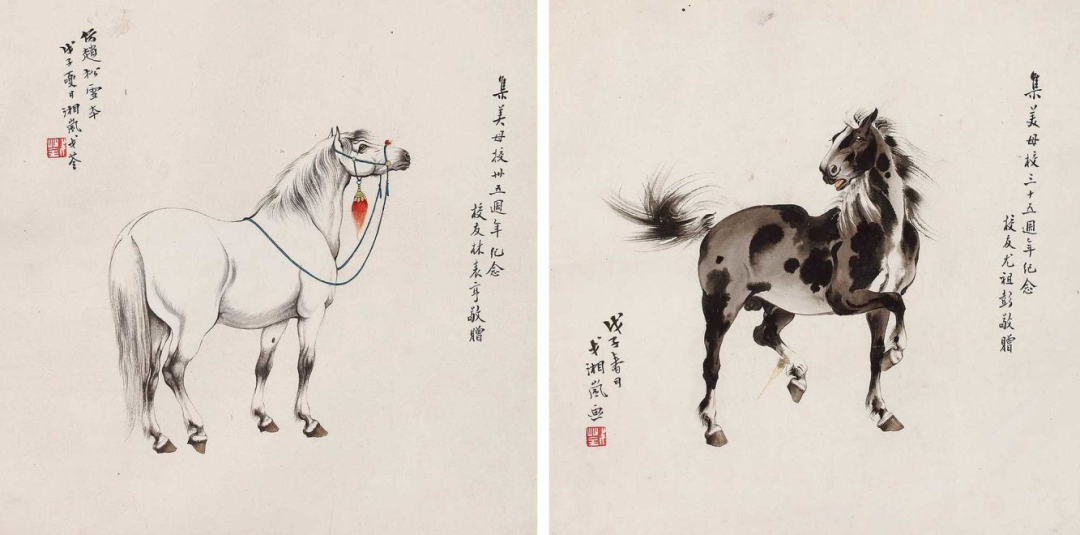 集美母校卅五週年纪念
校友林袁亨敬贈
仿趙松雪本
戊子夏日湘嵐戈荃
集美母校三十五週年纪念
校友尤祖彭敬贈
戊子春日
戈湘嵐画